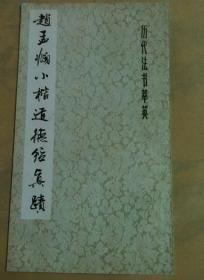 历代法书萃英
趙孟頫小楷道德經真蹟